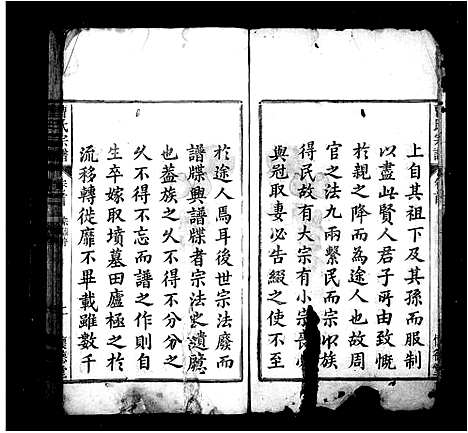 上自其祖下及其孫而服制
以盡此賢人君子所由致慨
於親之降而為途人也故周
官之法九兩繫民而宗以族
得民故有大宗有小宗喪
與冠取妻必告綴之使不至
於途人焉耳後世宗法廢而
譜牒興譜牒者宗法之遺廕
也蓋族之久不得不分分之
久不得不忘而譜之作則自
生卒嫁取墳墓田廬極之於
流移轉徙靡不畢載雖數千
曹氏宗譜